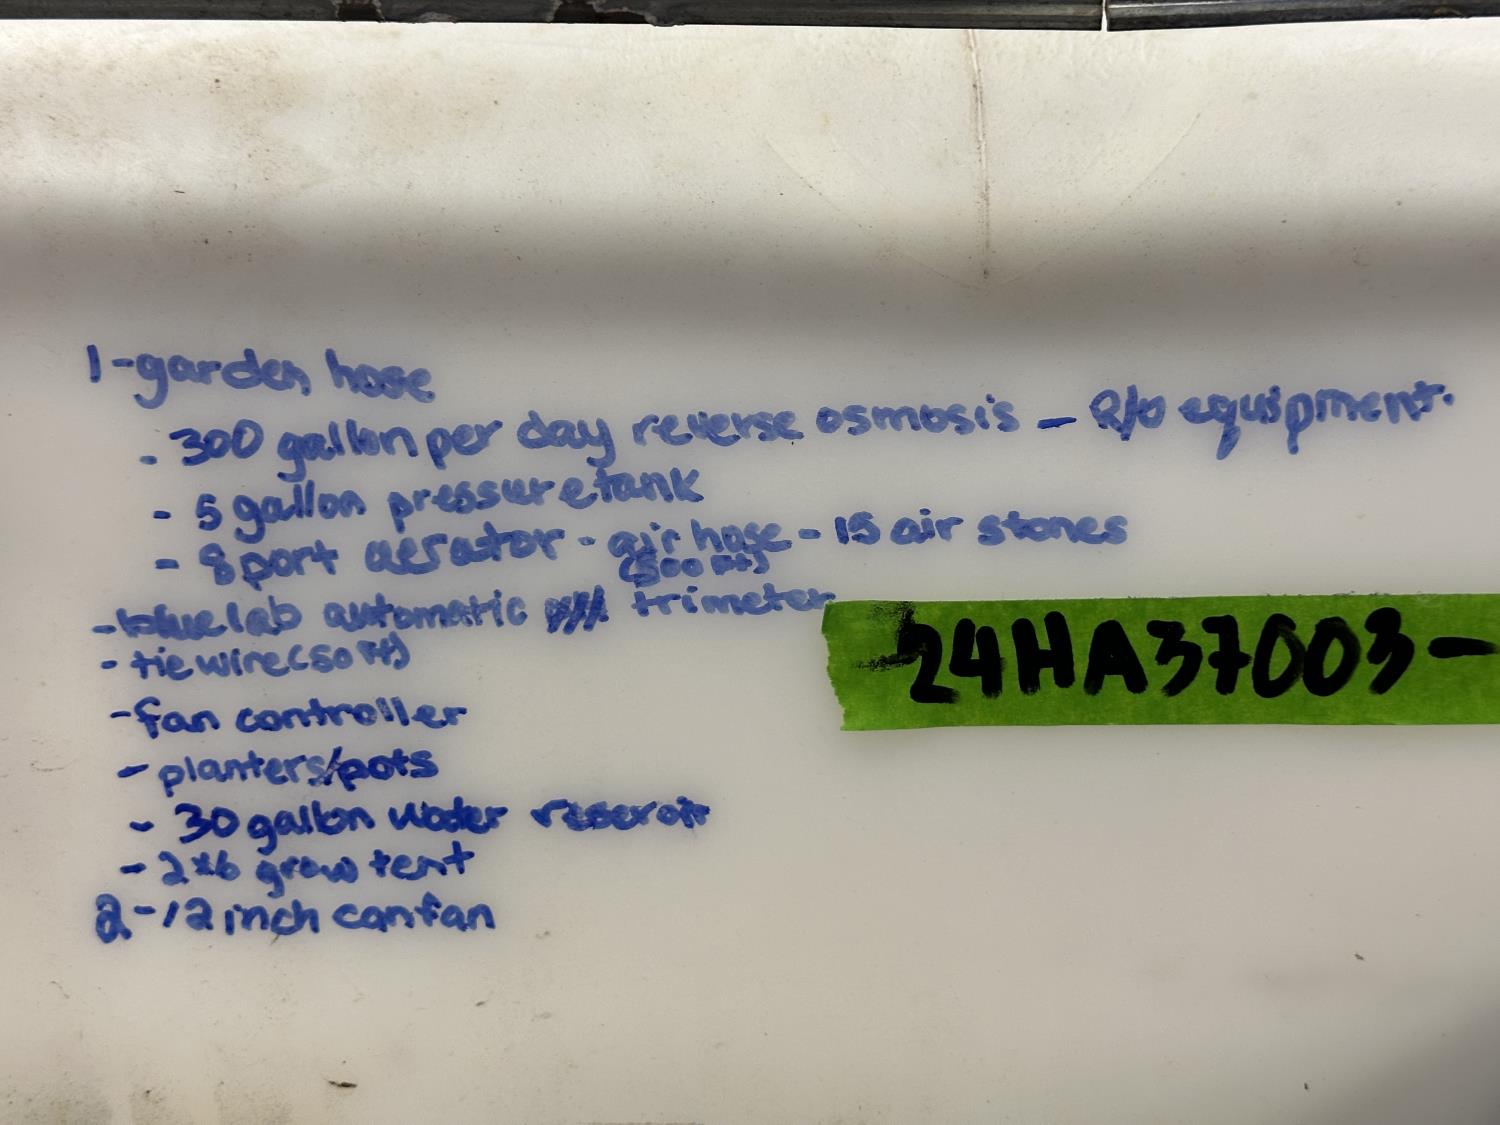 1-garden hose
- 300 gallon per day reverse osmosis - R/o equipment.
- 5 gallon pressure tank
- 8 port aerator - air hose - 15 air stones
(500 ft)
- bluelab automatic trimeter
- tie wire (50 ft)
24HA37003-
- fan controller
- planters/pots
- 30 gallon water reseroir
- 2x6 grow tent
2-12 inch canfan